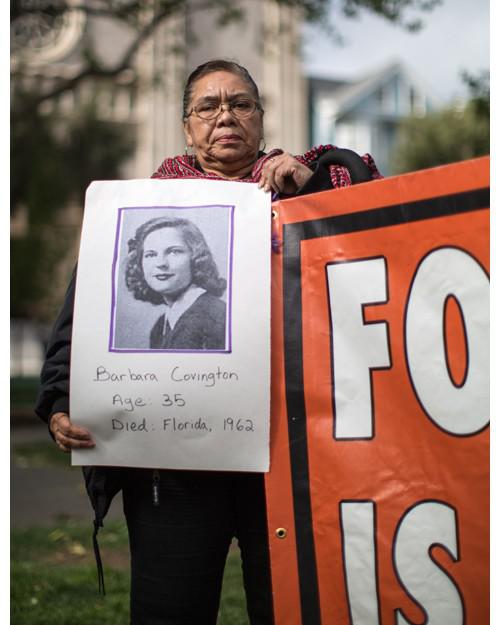 Barbara Covington
Age: 35
Died: Florida, 1962
FO
IS